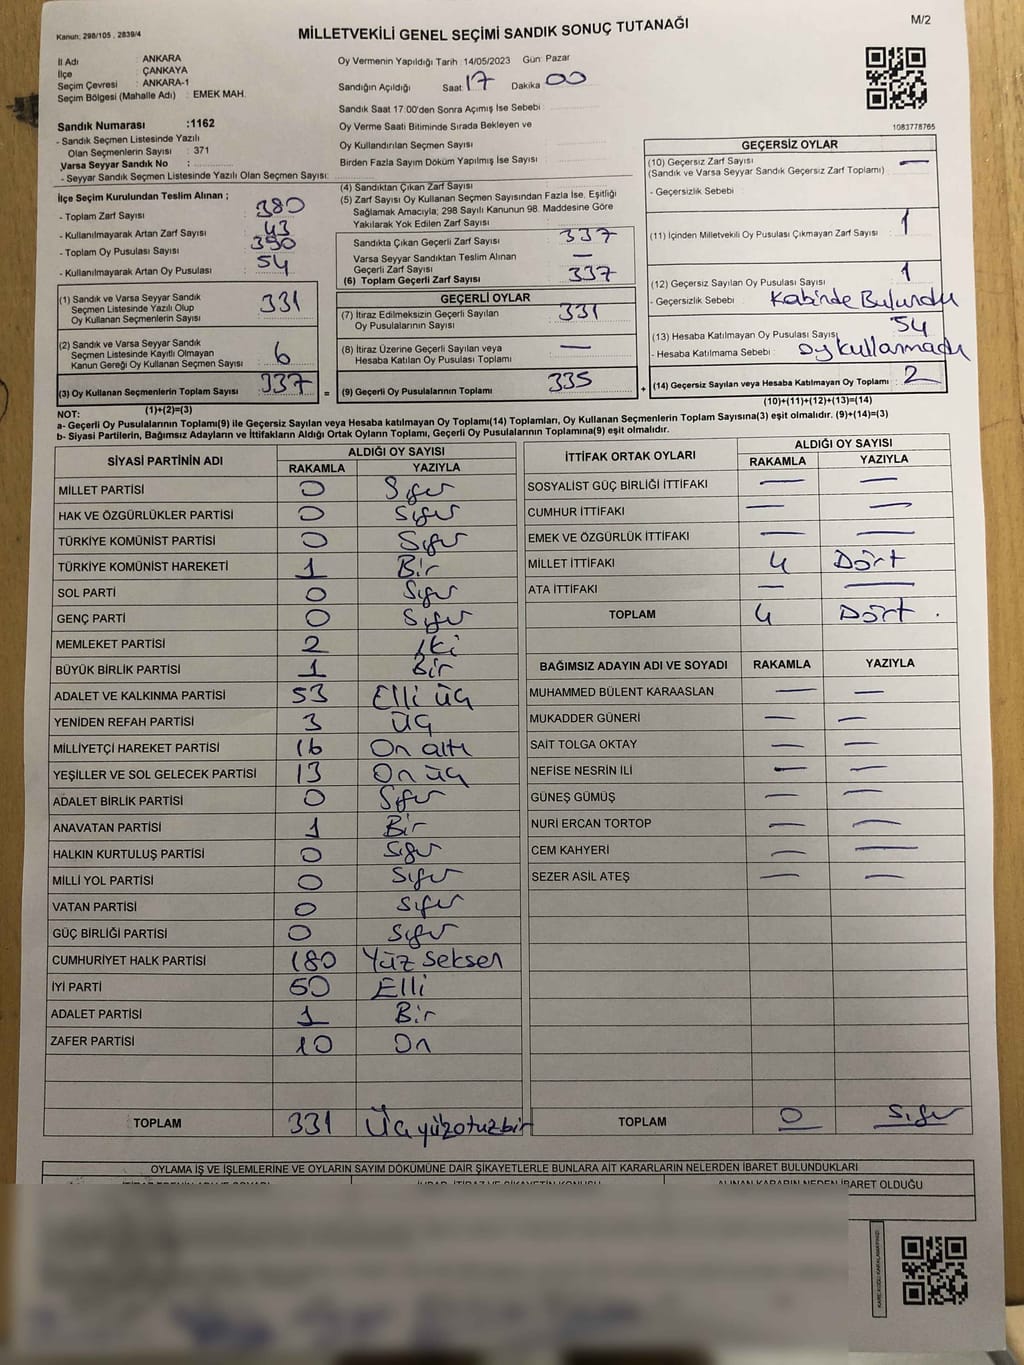 Kanun: 298/105 , 2839/4
MİLLETVEKİLİ GENEL SEÇİMİ SANDIK SONUÇ TUTANAĞI
M/2
İl Adı ANKARA
İlçe ÇANKAYA
Seçim Çevresi : ANKARA-1
Seçim Bölgesi (Mahalle Adı) : EMEK MAH.
Oy Vermenin Yapıldığı Tarih : 14/05/2023 Gün: Pazar
Sandığın Açıldığı Saat: 17 Dakika 00
Sandık Saat 17:00'den Sonra Açımış İse Sebebi :
Oy Verme Saati Bitiminde Sırada Bekleyen ve
Oy Kullandırılan Seçmen Sayısı
Birden Fazla Sayım Döküm Yapılmış İse Sayısı
1083778765
Sandık Numarası :1162
- Sandık Seçmen Listesinde Yazılı
Olan Seçmenlerin Sayısı : 371
Varsa Seyyar Sandık No :
- Seyyar Sandık Seçmen Listesinde Yazılı Olan Seçmen Sayısı:
İlçe Seçim Kurulundan Teslim Alınan ;
- Toplam Zarf Sayısı 380
- Kullanılmayarak Artan Zarf Sayısı 43
- Toplam Oy Pusulası Sayısı 390
- Kullanılmayarak Artan Oy Pusulası 54
(1) Sandık ve Varsa Seyyar Sandık
Seçmen Listesinde Yazılı Olup
Oy Kullanan Seçmenlerin Sayısı 331
(2) Sandık ve Varsa Seyyar Sandık
Seçmen Listesinde Kayıtlı Olmayan
Kanun Gereği Oy Kullanan Seçmen Sayısı 6
(3) Oy Kullanan Seçmenlerin Toplam Sayısı 337 =
(4) Sandıktan Çıkan Zarf Sayısı
(5) Zarf Sayısı Oy Kullanan Seçmen Sayısından Fazla İse, Eşitliği
Sağlamak Amacıyla; 298 Sayılı Kanunun 98. Maddesine Göre
Yakılarak Yok Edilen Zarf Sayısı
Sandıkta Çıkan Geçerli Zarf Sayısı 337
Varsa Seyyar Sandıktan Teslim Alınan
Geçerli Zarf Sayısı —
(6) Toplam Geçerli Zarf Sayısı 337
GEÇERLİ OYLAR
(7) İtiraz Edilmeksizin Geçerli Sayılan
Oy Pusulalarının Sayısı 331
(8) İtiraz Üzerine Geçerli Sayılan veya
Hesaba Katılan Oy Pusulası Toplamı —
(9) Geçerli Oy Pusulalarının Toplamı 335 +
GEÇERSİZ OYLAR
(10) Geçersiz Zarf Sayısı —
(Sandık ve Varsa Seyyar Sandık Geçersiz Zarf Toplamı)
- Geçersizlik Sebebi
(11) İçinden Milletvekili Oy Pusulası Çıkmayan Zarf Sayısı 1
(12) Geçersiz Sayılan Oy Pusulası Sayısı 1
- Geçersizlik Sebebi : Kabinde Bulundu
(13) Hesaba Katılmayan Oy Pusulası Sayısı 54
- Hesaba Katılmama Sebebi : oy kullanmadı
(14) Geçersiz Sayılan veya Hesaba Katılmayan Oy Toplamı 2
NOT: (1)+(2)=(3)
(10)+(11)+(12)+(13)=(14)
a- Geçerli Oy Pusulalarının Toplamı(9) ile Geçersiz Sayılan veya Hesaba katılmayan Oy Toplamı(14) Toplamları, Oy Kullanan Seçmenlerin Toplam Sayısına(3) eşit olmalıdır. (9)+(14)=(3)
b- Siyasi Partilerin, Bağımsız Adayların ve İttifakların Aldığı Ortak Oyların Toplamı, Geçerli Oy Pusulalarının Toplamına(9) eşit olmalıdır.
SİYASİ PARTİNİN ADI ALDIĞI OY SAYISI
RAKAMLA YAZIYLA
MİLLET PARTİSİ 0 Sıfır
HAK VE ÖZGÜRLÜKLER PARTİSİ 0 Sıfır
TÜRKİYE KOMÜNİST PARTİSİ 0 Sıfır
TÜRKİYE KOMÜNİST HAREKETİ 1 Bir
SOL PARTİ 0 Sıfır
GENÇ PARTİ 0 Sıfır
MEMLEKET PARTİSİ 2 İki
BÜYÜK BİRLİK PARTİSİ 1 Bir
ADALET VE KALKINMA PARTİSİ 53 Elli üç
YENİDEN REFAH PARTİSİ 3 üç
MİLLİYETÇİ HAREKET PARTİSİ 16 On altı
YEŞİLLER VE SOL GELECEK PARTİSİ 13 On üç
ADALET BİRLİK PARTİSİ 0 Sıfır
ANAVATAN PARTİSİ 1 Bir
HALKIN KURTULUŞ PARTİSİ 0 Sıfır
MİLLİ YOL PARTİSİ 0 Sıfır
VATAN PARTİSİ 0 Sıfır
GÜÇ BİRLİĞİ PARTİSİ 0 Sıfır
CUMHURİYET HALK PARTİSİ 180 Yüz seksen
İYİ PARTİ 50 Elli
ADALET PARTİSİ 1 Bir
ZAFER PARTİSİ 10 On
TOPLAM 331 Üçyüzotuzbir
İTTİFAK ORTAK OYLARI ALDIĞI OY SAYISI
RAKAMLA YAZIYLA
SOSYALİST GÜÇ BİRLİĞİ İTTİFAKI — —
CUMHUR İTTİFAKI — —
EMEK VE ÖZGÜRLÜK İTTİFAKI — —
MİLLET İTTİFAKI 4 Dört
ATA İTTİFAKI — —
TOPLAM 4 Dört .
BAĞIMSIZ ADAYIN ADI VE SOYADI RAKAMLA YAZIYLA
MUHAMMED BÜLENT KARAASLAN — —
MUKADDER GÜNERİ — —
SAİT TOLGA OKTAY — —
NEFİSE NESRİN İLİ — —
GÜNEŞ GÜMÜŞ — —
NURİ ERCAN TORTOP — —
CEM KAHYERİ — —
SEZER ASİL ATEŞ — —
TOPLAM 0 Sıfır
OYLAMA İŞ VE İŞLEMLERİNE VE OYLARIN SAYIM DÖKÜMÜNE DAİR ŞİKAYETLERLE BUNLARA AİT KARARLARIN NELERDEN İBARET BULUNDUKLARI
ALINAN KARARIN NEDEN İBARET OLDUĞU